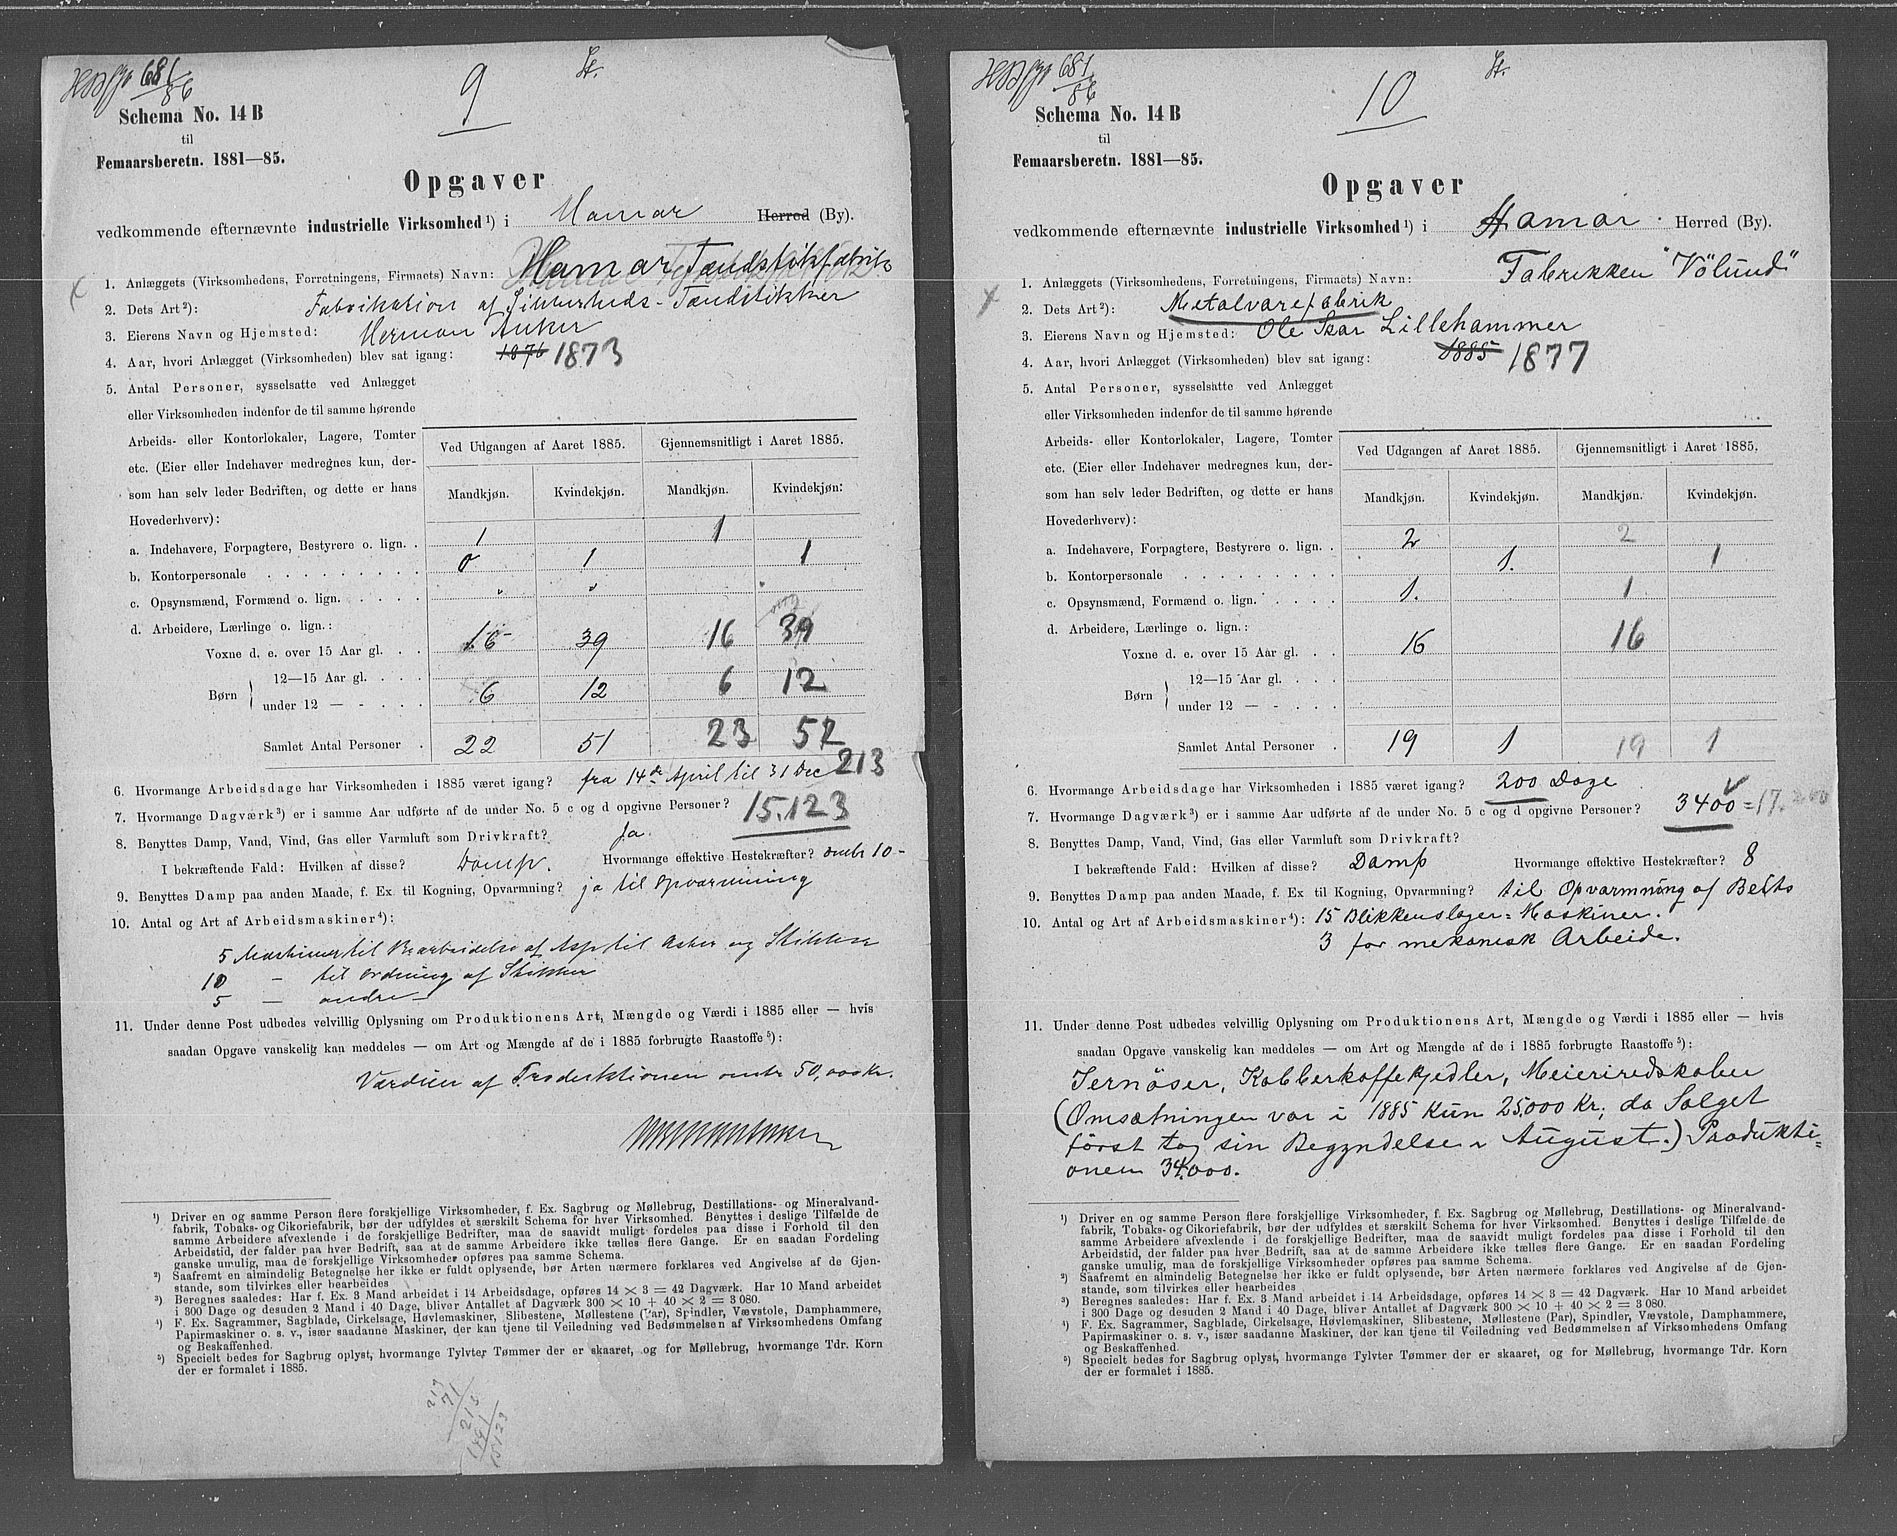 681/86
9
St.
Schema No. 14 B
til
Femaarsberetn. 1881—85.
Opgaver
vedkommende efternævnte industrielle Virksomhed¹) i Hamar Herred (By).
1. Anlæggets (Virksomhedens, Forretningens, Firmaets) Navn: Hamar Tændstikfabrik
2. Dets Art²): Fabrikation af Sikkerheds-Tændstikker
3. Eierens Navn og Hjemsted: Herman Anker
4. Aar, hvori Anlægget (Virksomheden) blev sat igang: 1876 1873
5. Antal Personer, sysselsatte ved Anlægget
eller Virksomheden indenfor de til samme hørende
Arbeids- eller Kontorlokaler, Lagere, Tomter
etc. (Eier eller Indehaver medregnes kun, der-
som han selv leder Bedriften, og dette er hans
Hovederhverv):
Ved Udgangen af Aaret 1885. Gjennemsnitligt i Aaret 1885.
Mandkjøn. Kvindekjøn. Mandkjøn. Kvindekjøn.
a. Indehavere, Forpagtere, Bestyrere o. lign. . 1 1
b. Kontorpersonale . . . . . . . . . 0 1 1
c. Opsynsmænd, Formænd o. lign. . . . . " "
d. Arbeidere, Lærlinge o. lign.:
Voxne d. e. over 15 Aar gl. . . 16 39 16 39
Børn 12—15 Aar gl. . . . 6 12 6 12
under 12 — - . . . .
Samlet Antal Personer . 22 51 23 52
6. Hvormange Arbeidsdage har Virksomheden i 1885 været igang? fra 14de April til 31 Dec 213
7. Hvormange Dagværk³) er i samme Aar udførte af de under No. 5 c og d opgivne Personer? 15.123
8. Benyttes Damp, Vand, Vind, Gas eller Varmluft som Drivkraft? Ja.
I bekræftende Fald: Hvilken af disse? Damp. Hvormange effektive Hestekræfter? omtr 10-
9. Benyttes Damp paa anden Maade, f. Ex. til Kogning, Opvarmning? ja til opvarmning
10. Antal og Art af Arbeidsmaskiner⁴):
5 Maskiner til Bearbeidelse af Asp til Æsker og Stikker
10 — til ordning af Stikker
5 — andre —
11. Under denne Post udbedes velvillig Oplysning om Produktionens Art, Mængde og Værdi i 1885 eller — hvis
saadan Opgave vanskelig kan meddeles — om Art og Mængde af de i 1885 forbrugte Raastoffe⁵):
Værdien af Produktionen omtr 50,000 kr.
¹) Driver en og samme Person flere forskjellige Virksomheder, f. Ex. Sagbrug og Møllebrug, Destillations- og Mineralvand-
fabrik, Tobaks- og Cikoriefabrik, bør der udfyldes et særskilt Schema for hver Virksomhed. Benyttes i deslige Tilfælde de
samme Arbeidere afvexlende i de forskjellige Bedrifter, maa de saavidt muligt fordeles paa disse i Forhold til den
Arbeidstid, der falder paa hver Bedrift, saa at de samme Arbeidere ikke tælles flere Gange. Er en saadan Fordeling
ganske umulig, maa de forskjellige Virksomheder opføres paa samme Schema.
²) Saafremt en almindelig Betegnelse her ikke er fuldt oplysende, bør Arten nærmere forklares ved Angivelse af de Gjen-
stande, som tilvirkes eller bearbeides
³) Beregnes saaledes: Har f. Ex. 3 Mand arbeidet i 14 Arbeidsdage, opføres 14 × 3 = 42 Dagværk. Har 10 Mand arbeidet
i 300 Dage og desuden 2 Mand i 40 Dage, bliver Antallet af Dagværk 300 × 10 + 40 × 2 = 3 080.
⁴) F. Ex. Sagrammer, Sagblade, Cirkelsage, Høvlemaskiner, Slibestene, Møllestene (Par), Spindler, Vævstole, Damphammere,
Papirmaskiner o. s. v., især saadanne Maskiner, der kan tjene til Veiledning ved Bedømmelsen af Virksomhedens Omfang
og Beskaffenhed.
⁵) Specielt bedes for Sagbrug oplyst, hvormange Tylvter Tømmer der er skaaret, og for Møllebrug, hvormange Tdr. Korn
der er formalet i 1885.
213
71
213
1491
15123
681/86
10
St.
Schema No. 14 B
til
Femaarsberetn. 1881—85.
Opgaver
vedkommende efternævnte industrielle Virksomhed¹) i Hamar. Herred (By).
1. Anlæggets (Virksomhedens, Forretningens, Firmaets) Navn: Fabrikken "Völund"
2. Dets Art²): Metalvarefabrik
3. Eierens Navn og Hjemsted: Ole Skar Lillehammer
4. Aar, hvori Anlægget (Virksomheden) blev sat igang: 1885 1877
5. Antal Personer, sysselsatte ved Anlægget
eller Virksomheden indenfor de til samme hørende
Arbeids- eller Kontorlokaler, Lagere, Tomter
etc. (Eier eller Indehaver medregnes kun, der-
som han selv leder Bedriften, og dette er hans
Hovederhverv):
Ved Udgangen af Aaret 1885. Gjennemsnitligt i Aaret 1885.
Mandkjøn. Kvindekjøn. Mandkjøn. Kvindekjøn.
a. Indehavere, Forpagtere, Bestyrere o. lign. . 2 2
b. Kontorpersonale . . . . . . . . . 1. 1
c. Opsynsmænd, Formænd o. lign. . . . . 1. 1
d. Arbeidere, Lærlinge o. lign.:
Voxne d. e. over 15 Aar gl. . . 16 16
Børn 12—15 Aar gl. . . .
under 12 — - . . . .
Samlet Antal Personer . 19 1 19 1
6. Hvormange Arbeidsdage har Virksomheden i 1885 været igang? 200 Dage
7. Hvormange Dagværk³) er i samme Aar udførte af de under No. 5 c og d opgivne Personer? 3400 = 17.200
8. Benyttes Damp, Vand, Vind, Gas eller Varmluft som Drivkraft?
I bekræftende Fald: Hvilken af disse? Damp Hvormange effektive Hestekræfter? 8
9. Benyttes Damp paa anden Maade, f. Ex til Kogning, Opvarmning? til Opvarmning af Beits
10. Antal og Art af Arbeidsmaskiner⁴): 15 Blikkenslager=Maskiner.
3 for mekanisk Arbeide.
11. Under denne Post udbedes velvillig Oplysning om Produktionens Art, Mængde og Værdi i 1885 eller — hvis
saadan Opgave vanskelig kan meddeles — om Art og Mængde af de i 1885 forbrugte Raastoffe⁵):
Jernöser, Kobberkaffekjedler, Meieriredskaber
(Omsætningen var i 1885 kun 25.000 Kr, da Salget
först tog sin Begyndelse i August.) Produkti=
onen 34.000.
¹) Driver en og samme Person flere forskjellige Virksomheder, f. Ex. Sagbrug og Møllebrug, Destillations- og Mineralvand-
fabrik, Tobaks- og Cikoriefabrik, bør der udfyldes et særskilt Schema for hver Virksomhed. Benyttes i deslige Tilfælde de
samme Arbeidere afvexlende i de forskjellige Bedrifter, maa de saavidt muligt fordeles paa disse i Forhold til den
Arbeidstid, der falder paa hver Bedrift, saa at de samme Arbeidere ikke tælles flere Gange. Er en saadan Fordeling
ganske umulig, maa de forskjellige Virksomheder opføres paa samme Schema.
²) Saafremt en almindelig Betegnelse her ikke er fuldt oplysende, bør Arten nærmere forklares ved Angivelse af de Gjen-
stande, som tilvirkes eller bearbeides
³) Beregnes saaledes: Har f. Ex. 3 Mand arbeidet i 14 Arbeidsdage, opføres 14 × 3 = 42 Dagværk. Har 10 Mand arbeidet
i 300 Dage og desuden 2 Mand i 40 Dage, bliver Antallet af Dagværk 300 × 10 + 40 × 2 = 3 080.
⁴) F. Ex. Sagrammer, Sagblade, Cirkelsage, Høvlemaskiner, Slibestene, Møllestene (Par), Spindler, Vævstole, Damphammere,
Papirmaskiner o. s. v., især saadanne Maskiner, der kan tjene til Veiledning ved Bedømmelsen af Virksomhedens Omfang
og Beskaffenhed.
⁵) Specielt bedes for Sagbrug oplyst, hvormange Tylvter Tømmer der er skaaret, og for Møllebrug, hvormange Tdr. Korn
der er formalet i 1885.